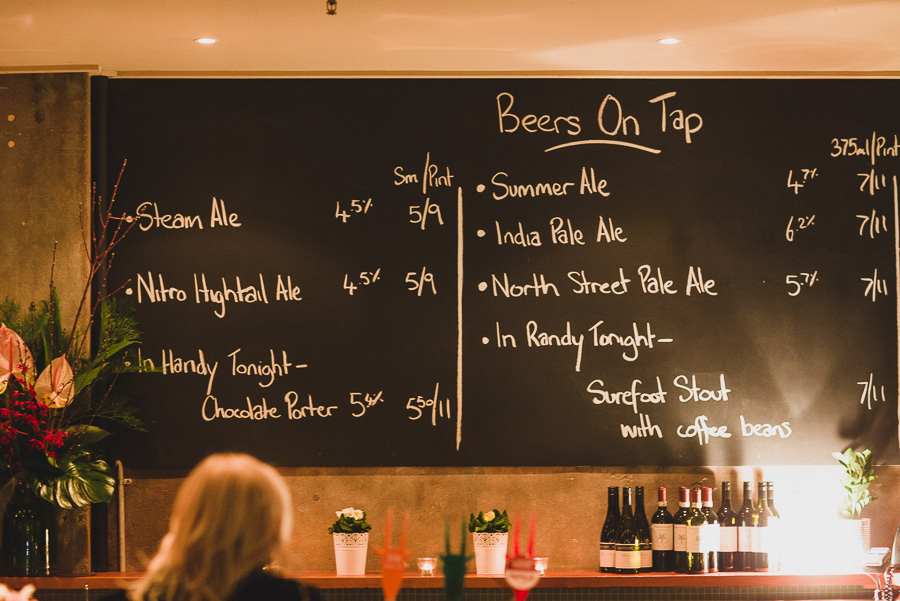 Beers On Tap
Sm/Pint
• Steam Ale 4.5% 5/9
• Nitro Hightail Ale 4.5% 5/9
• In Handy Tonight –
Chocolate Porter 5.4% 5.50/11
375ml/Pint
• Summer Ale 4.7% 7/11
• India Pale Ale 6.2% 7/11
• North Street Pale Ale 5.7% 7/11
• In Randy Tonight –
Surefoot Stout 7/11
with coffee beans